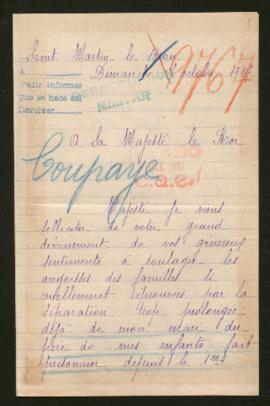 Saint Martin le Beau
Dimanche octobre 191
9767
A
Pedir informes
que se hace así
Devolver
MILITAR
A Sa Majesté le Roi
Coupaye
Majesté je viens
solliciter de votre grand
dévouement de vos généreux
sentiments à soulager les
angoisses des familles si
cruellement éprouvées par la
séparation trop prolongée
déjà de mon mari du
père de mes enfants fait
prisonnier depuis le 1er